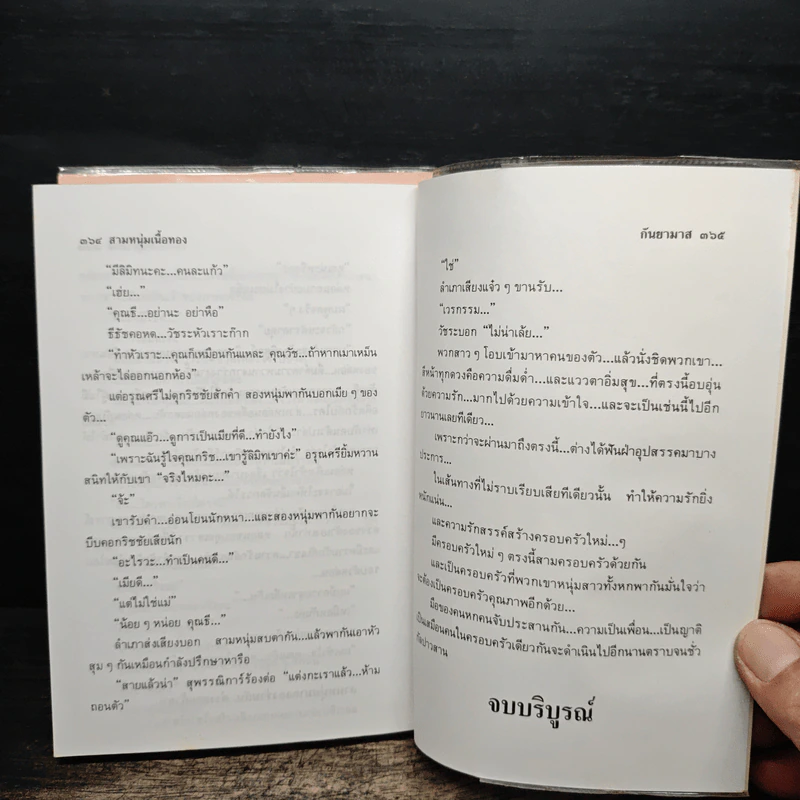 ๓๖๔ สามหนุ่มเนื้อทอง
“มีลิมิทนะคะ...คนละแก้ว”
“เฮ่ย...”
“คุณธี...อย่านะ อย่าหือ”
ธีธัชคอหด...วัชระหัวเราะก๊าก
“ทำหัวเราะ...คุณก็เหมือนกันแหละ คุณวัช...ถ้าหากเมาเหม็น
เหล้าจะไล่ออกนอกห้อง”
แต่อรุณศรีไม่ดุกริชชัยสักคำ สองหนุ่มพากันบอกเมีย ๆ ของ
ตัว...
“ดูคุณแอ๊ว...ดูการเป็นเมียที่ดี...ทำยังไง”
“เพราะฉันรู้ใจคุณกริช...เขารู้ลิมิทเขาค่ะ” อรุณศรียิ้มหวาน
สนิทให้กับเขา “จริงไหมคะ...”
“จ้ะ”
เขารับคำ...อ่อนโยนนักหนา...และสองหนุ่มพากันอยากจะ
บีบคอกริชชัยเสียนัก
“อะไรวะ...ทำเป็นคนดี...”
“เมียดี...”
“แต่ไม่ใช่แม่”
“น้อย ๆ หน่อย คุณธี...”
ลำเภาส่งเสียงบอก สามหนุ่มสบตากัน...แล้วพากันเอาหัว
สุม ๆ กันเหมือนกำลังปรึกษาหารือ
“สายแล้วน่า” สุพรรณิการ์ร้องต่อ “แต่งกะเราแล้ว...ห้าม
ถอนตัว”
กันยามาส ๓๖๕
“ใช่”
ลำเภาเสียงแจ๋ว ๆ ขานรับ...
“เวรกรรม...”
วัชระบอก “ไม่น่าเล้ย...”
พวกสาว ๆ โอบเข้ามาหาคนของตัว...แล้วนั่งชิดพวกเขา...
สีหน้าทุกดวงคือความดื่มด่ำ...และแววตาอิ่มสุข...ที่ตรงนี้อบอุ่น
ด้วยความรัก...มากไปด้วยความเข้าใจ...และจะเป็นเช่นนี้ไปอีก
ยาวนานเลยทีเดียว...
เพราะกว่าจะผ่านมาถึงตรงนี้...ต่างได้ฟันฝ่าอุปสรรคมาบาง
ประการ...
ในเส้นทางที่ไม่ราบเรียบเสียทีเดียวนั้น ทำให้ความรักยิ่ง
หนักแน่น...
และความรักสรรค์สร้างครอบครัวใหม่...ๆ
มีครอบครัวใหม่ ๆ ตรงนี้สามครอบครัวด้วยกัน
และเป็นครอบครัวที่พวกเขาหนุ่มสาวทั้งหกพากันมั่นใจว่า
จะต้องเป็นครอบครัวคุณภาพอีกด้วย...
มือของคนหกคนจับประสานกัน...ความเป็นเพื่อน...เป็นญาติ
เป็นเสมือนคนในครอบครัวเดียวกันจะดำเนินไปอีกนานตราบจนชั่ว
กัลปาวสาน
จบบริบูรณ์